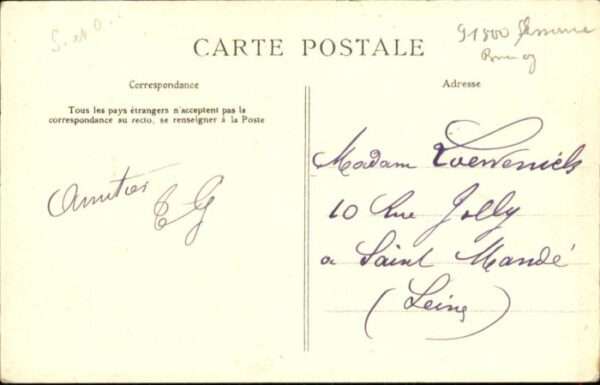 S. et O...
91800 Essonne
CARTE POSTALE
Correspondance
Tous les pays étrangers n'acceptent pas la
correspondance au recto, se renseigner à la Poste
Amitiés
EG
Adresse
Madam
10 Rue Jolly
a Saint Mandé
(Seine)